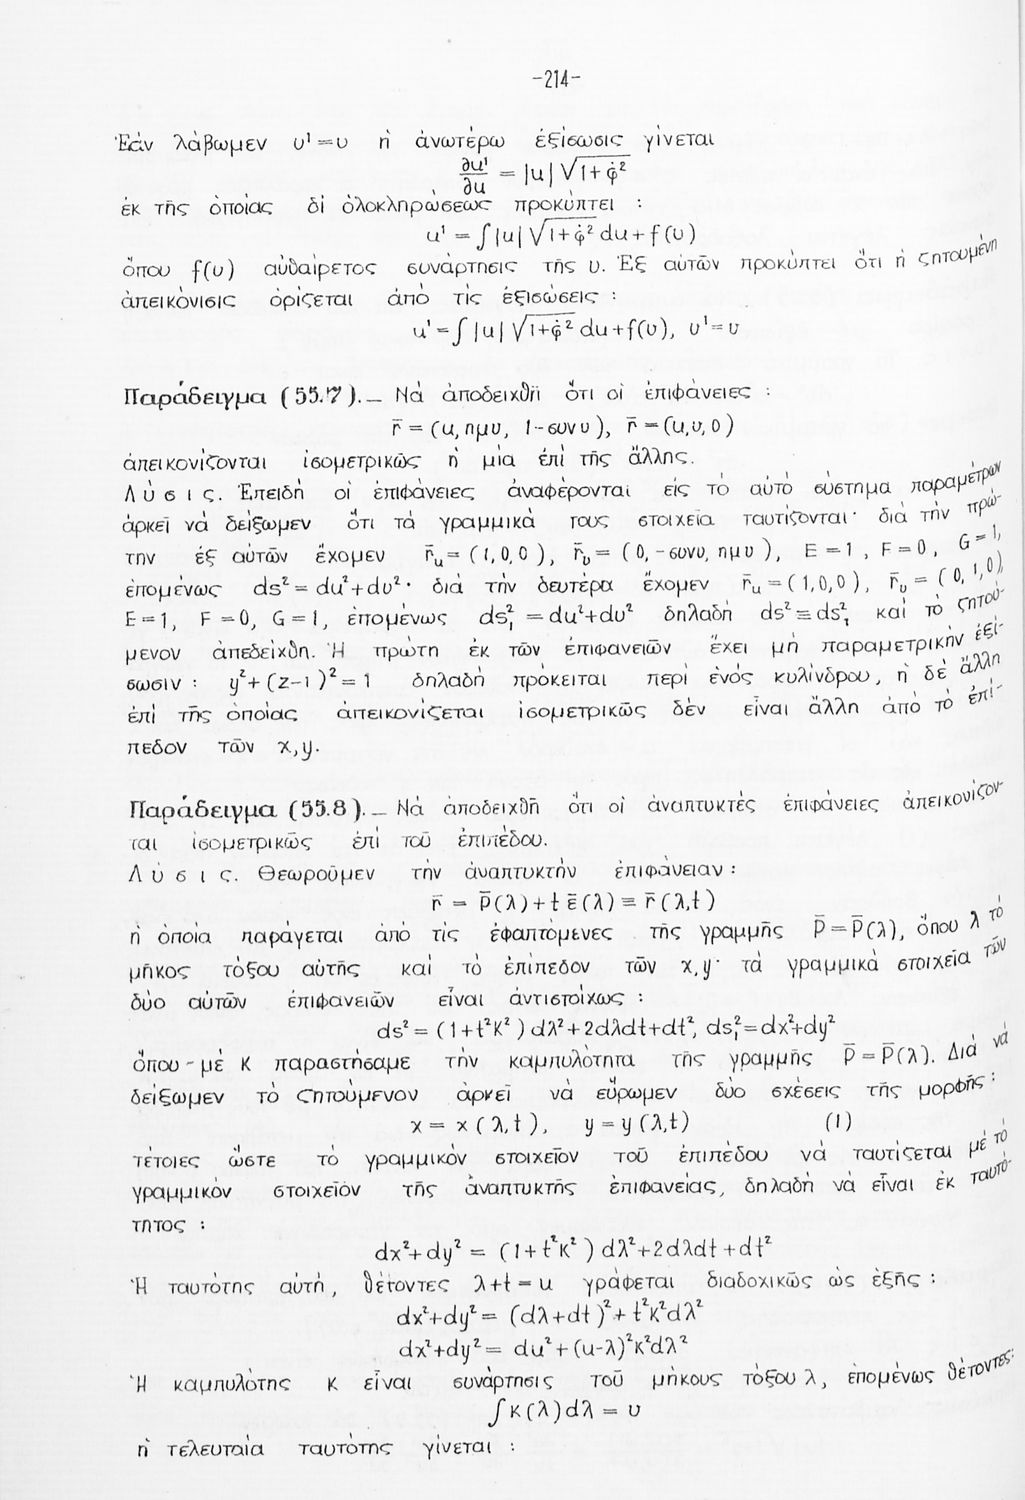 -214-
Ἐάν λάβωμεν υ¹=υ ἡ ἀνωτέρω ἐξίσωσις γίνεται
∂u¹/∂u = |u| √1+φ̇²
ἐκ τῆς ὁποίας δι ὁλοκληρώσεως προκύπτει :
u¹ = ∫|u| √1+φ̇² du + f(υ)
ὅπου f(υ) αὐθαίρετος συνάρτησις τῆς υ. Ἐξ αὐτῶν προκύπτει ὅτι ἡ ζητουμένη
ἀπεικόνισις ὁρίζεται ἀπό τίς ἐξισώσεις :
u¹=∫|u| √1+φ̇² du+f(υ), υ¹=υ
Παράδειγμα (55.7)._ Νά ἀποδειχθῆ ὅτι οἱ ἐπιφάνειες :
r̄ = (u, ημυ, 1-συνυ), r̄ =(u,υ,0)
ἀπεικονίζονται ἰσομετρικῶς ἡ μία ἐπί τῆς ἄλλης.
Λ ύ σ ι ς. Ἐπειδή οἱ ἐπιφάνειες ἀναφέρονται εἰς τό αὐτό σύστημα παραμέτρων
ἀρκεῖ νά δείξωμεν ὅτι τά γραμμικά τους στοιχεῖα ταυτίζονται· διά τήν πρώ-
την ἐξ αὐτῶν ἔχομεν r̄ᵤ=(1,0,0), r̄ᵥ= (0,-συνυ, ημυ), E=1, F=0, G=1,
ἑπομένως ds²= du²+dυ²· διά τήν δευτέρα ἔχομεν r̄ᵤ=(1,0,0), r̄ᵥ=(0,1,0)
E=1, F=0, G=1, ἑπομένως ds₁² =du²+dυ² δηλαδή ds²≡ds₁² καί τό ζητού-
μενον ἀπεδείχθη. Ἡ πρώτη ἐκ τῶν ἐπιφανειῶν ἔχει μή παραμετρικήν ἐξί-
σωσιν : y²+(z-1)²=1 δηλαδή πρόκειται περί ἑνός κυλίνδρου, ἡ δέ ἄλλη
ἐπί τῆς ὁποίας ἀπεικονίζεται ἰσομετρικῶς δέν εἶναι ἄλλη ἀπό τό ἐπί-
πεδον τῶν x,y.
Παράδειγμα (55.8)._ Νά ἀποδειχθῆ ὅτι οἱ ἀναπτυκτές ἐπιφάνειες ἀπεικονίζον-
ται ἰσομετρικῶς ἐπί τοῦ ἐπιπέδου.
Λ ύ σ ι ς. Θεωροῦμεν τήν ἀναπτυκτήν ἐπιφάνειαν :
r̄ = p̄(λ)+t ε̄(λ) ≡ r̄(λ,t)
ἡ ὁποία παράγεται ἀπό τίς ἐφαπτόμενες τῆς γραμμῆς p̄=p̄(λ), ὅπου λ τό
μῆκος τόξου αὐτῆς καί τό ἐπίπεδον τῶν x,y· τά γραμμικά στοιχεῖα τῶν
δύο αὐτῶν ἐπιφανειῶν εἶναι ἀντιστοίχως :
ds²= (1+t²K²)dλ²+2dλdt+dt², ds₁²=dx²+dy²
ὅπου - μέ K παραστήσαμε τήν καμπυλότητα τῆς γραμμῆς p̄=p̄(λ). Διά νά
δείξωμεν τό ζητούμενον ἀρκεῖ νά εὕρωμεν δύο σχέσεις τῆς μορφῆς :
x = x(λ,t), y = y(λ,t) (1)
τέτοιες ὥστε τό γραμμικόν στοιχεῖον τοῦ ἐπιπέδου νά ταυτίζεται μέ τό
γραμμικόν στοιχεῖον τῆς ἀναπτυκτῆς ἐπιφανείας, δηλαδή νά εἶναι ἐκ ταυτό-
τητος :
dx²+dy² = (1+t²K²)dλ²+2dλdt+dt²
Ἡ ταυτότης αὐτή, θέτοντες λ+t=u γράφεται διαδοχικῶς ὡς ἑξῆς :
dx²+dy²= (dλ+dt)²+t²K²dλ²
dx²+dy²= du²+(u-λ)²K²dλ²
Ἡ καμπυλότης K εἶναι συνάρτησις τοῦ μήκους τόξου λ, ἑπομένως θέτοντες:
∫K(λ)dλ = υ
ἡ τελευταία ταυτότης γίνεται :